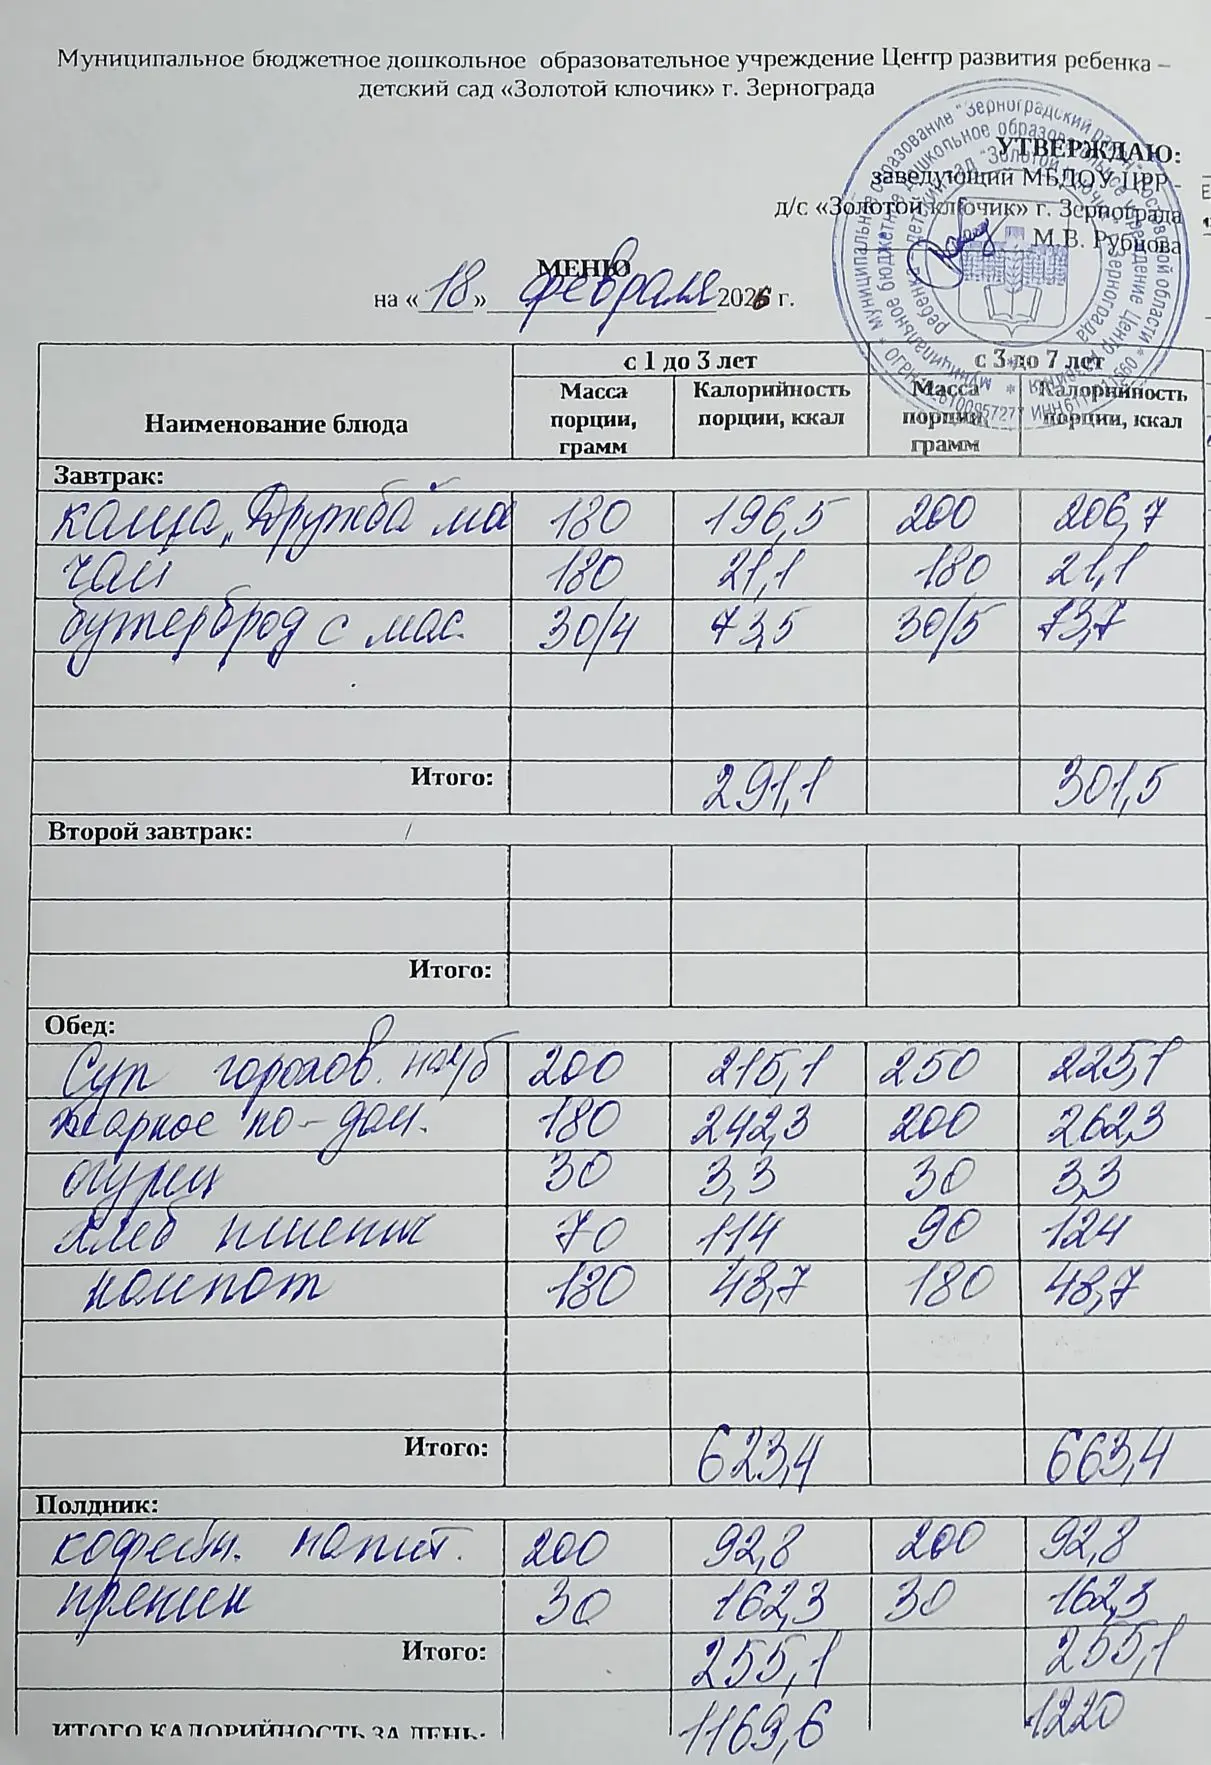 Муниципальное бюджетное дошкольное образовательное учреждение Центр развития ребенка –
детский сад «Золотой ключик» г. Зернограда
УТВЕРЖДАЮ:
заведующий МБДОУ ЦРР -
д/с «Золотой ключик» г. Зернограда
М.В. Рубцова
МЕНЮ
на «18» февраля 2026 г.
Наименование блюда с 1 до 3 лет с 3 до 7 лет
Масса порции, грамм Калорийность порции, ккал Масса порции, грамм Калорийность порции, ккал
Завтрак:
каша „Дружба" мол 180 196,5 200 206,7
чай 180 21,1 180 21,1
бутерброд с мас. 30/4 73,5 30/5 73,7
Итого: 291,1 301,5
Второй завтрак:
Итого:
Обед:
Суп горохов. на м/б 200 215,1 250 225,1
жаркое по-дом. 180 242,3 200 262,3
огурец 30 3,3 30 3,3
хлеб пшенич 70 114 90 124
компот 180 48,7 180 48,7
Итого: 623,4 663,4
Полдник:
кофейн. напит. 200 92,8 200 92,8
пряник 30 162,3 30 162,3
Итого: 255,1 255,1
ИТОГО КАЛОРИЙНОСТЬ ЗА ДЕНЬ: 1169,6 1220